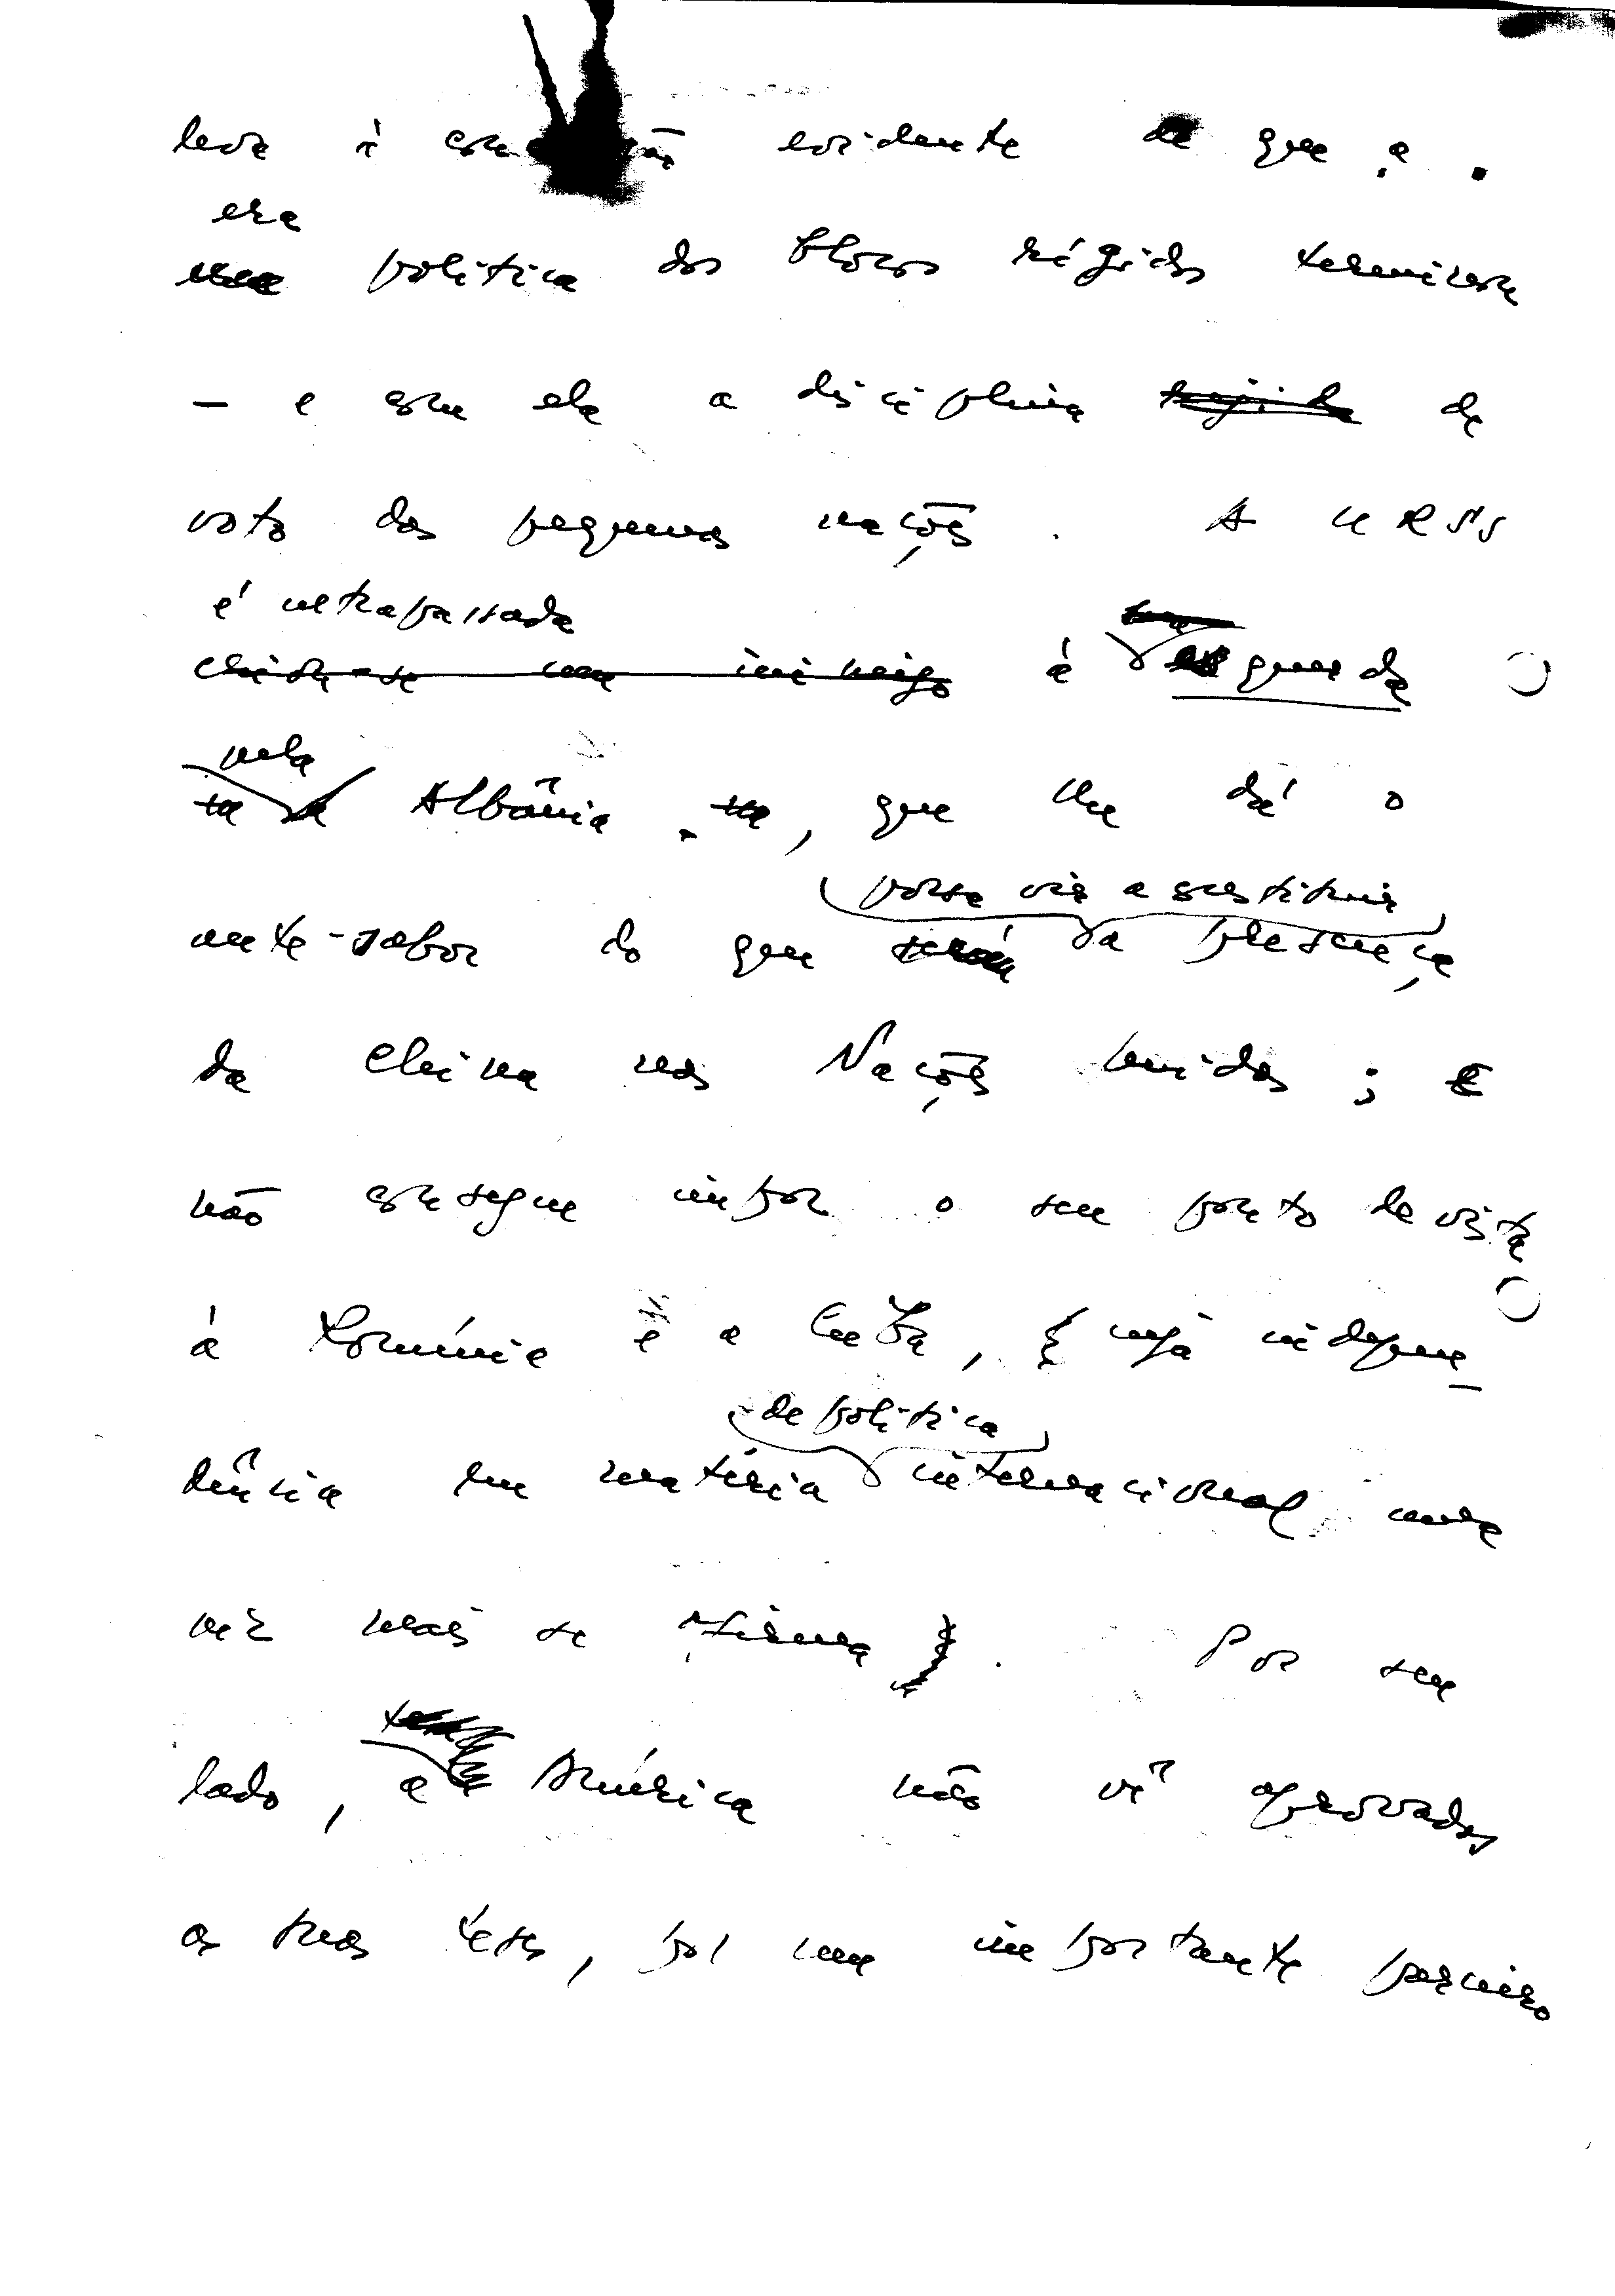 leva à evidente de que a
era
política dos blocos rígidos terminou
— e com ela a disciplina rígida de
voto das pequenas nações. A URSS
é ultrapassada
à esquerda
pela
Albânia, que lhe dá o
possa vir a sustituir
ante-sabor do que a presença
da China nas Nações Unidas; e
não consegue impor o seu ponto de vista
à Roménia e a Cuba, cuja indepen-
de política
dência em matéria internacional uma
vez mais se afirma. Por seu
lado, a América não vê aprovadas
as suas teses, por um importante parceiro